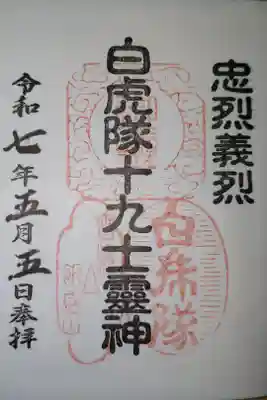 忠烈義烈
白虎隊十九士靈神
令和七年五月五日奉拝
白虎隊